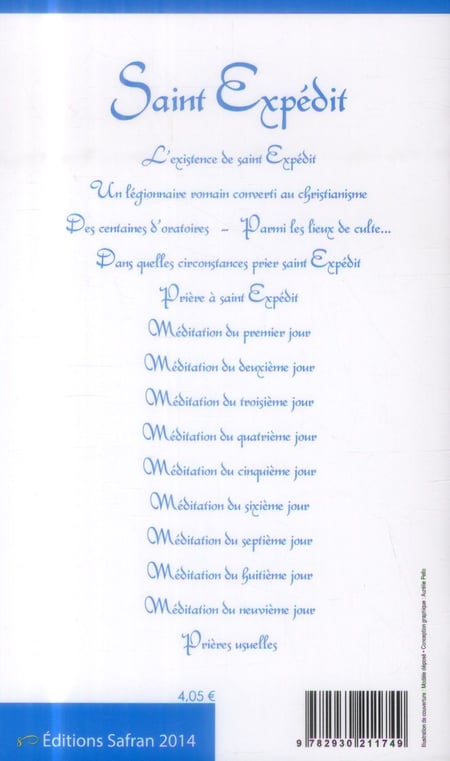 Saint Expédit
L'existence de saint Expédit
Un légionnaire romain converti au christianisme
Des centaines d'oratoires – Parmi les lieux de culte...
Dans quelles circonstances prier saint Expédit
Prière à saint Expédit
Méditation du premier jour
Méditation du deuxième jour
Méditation du troisième jour
Méditation du quatrième jour
Méditation du cinquième jour
Méditation du sixième jour
Méditation du septième jour
Méditation du huitième jour
Méditation du neuvième jour
Prières usuelles
4,05 €
Éditions Safran 2014
9 782930 211749
Illustration de couverture : Modèle déposé • Conception graphique : Aurélie Pello